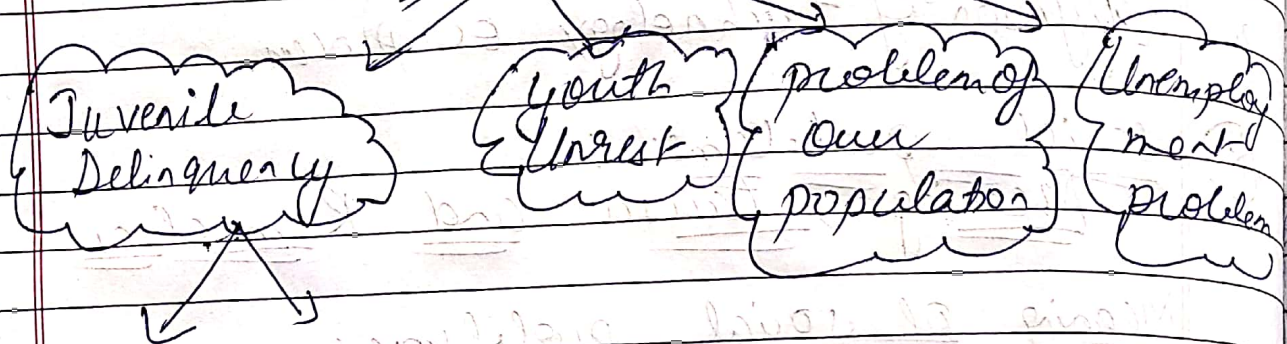 Juvenile
Delinquency
Youth
Unrest
problem of
over
population
Unemploy
ment
problem